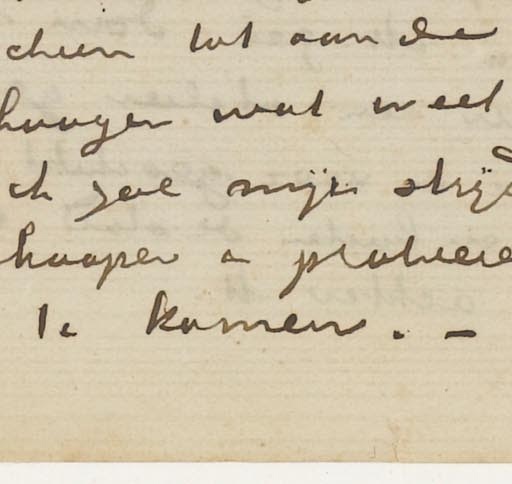 chien tot aan de
haagen wat weet
ch zal mijn strijd
hoopen a probeere
te komen. –